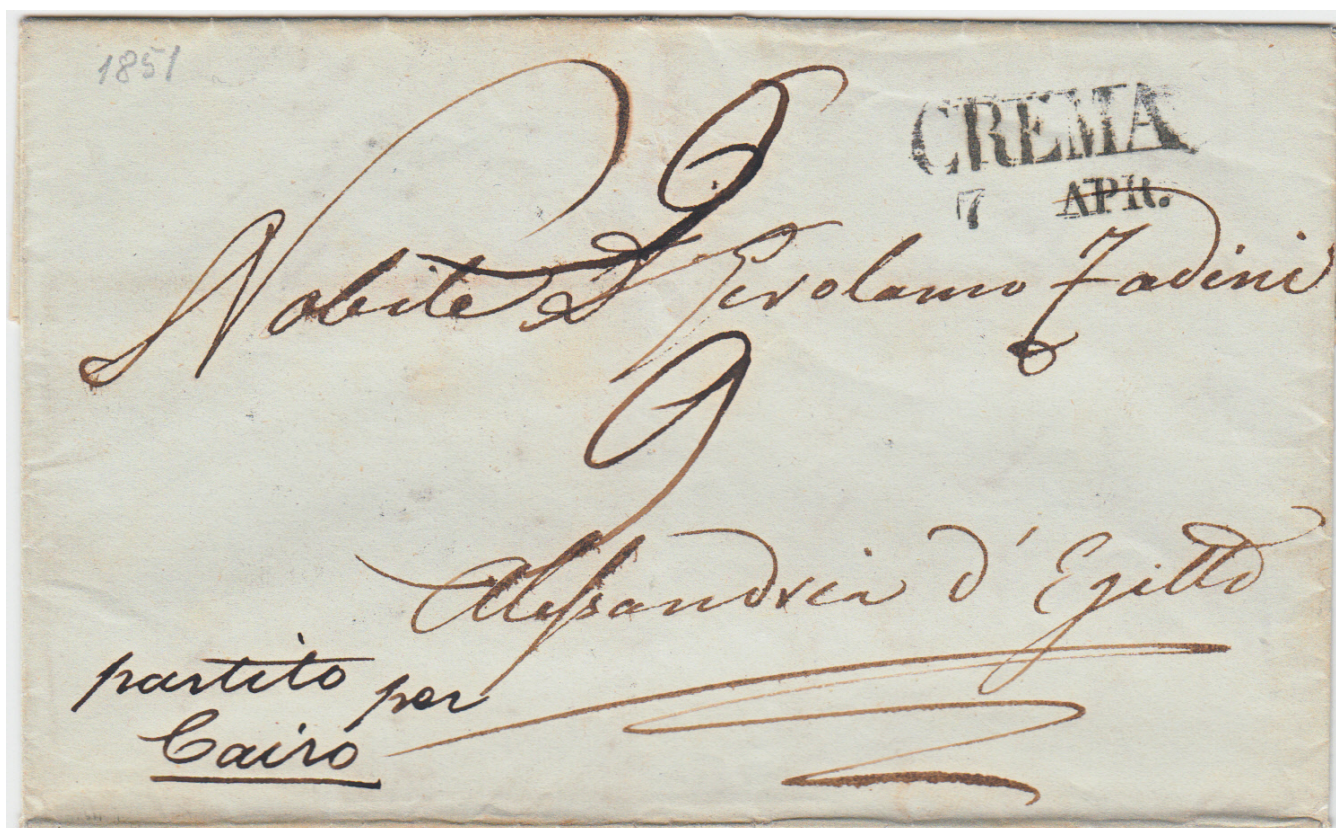 1851
CREMA
7 APR.
Nobile Sr Girolamo Fadini
9
9
Alessandria d'Egitto
partito per
Cairo